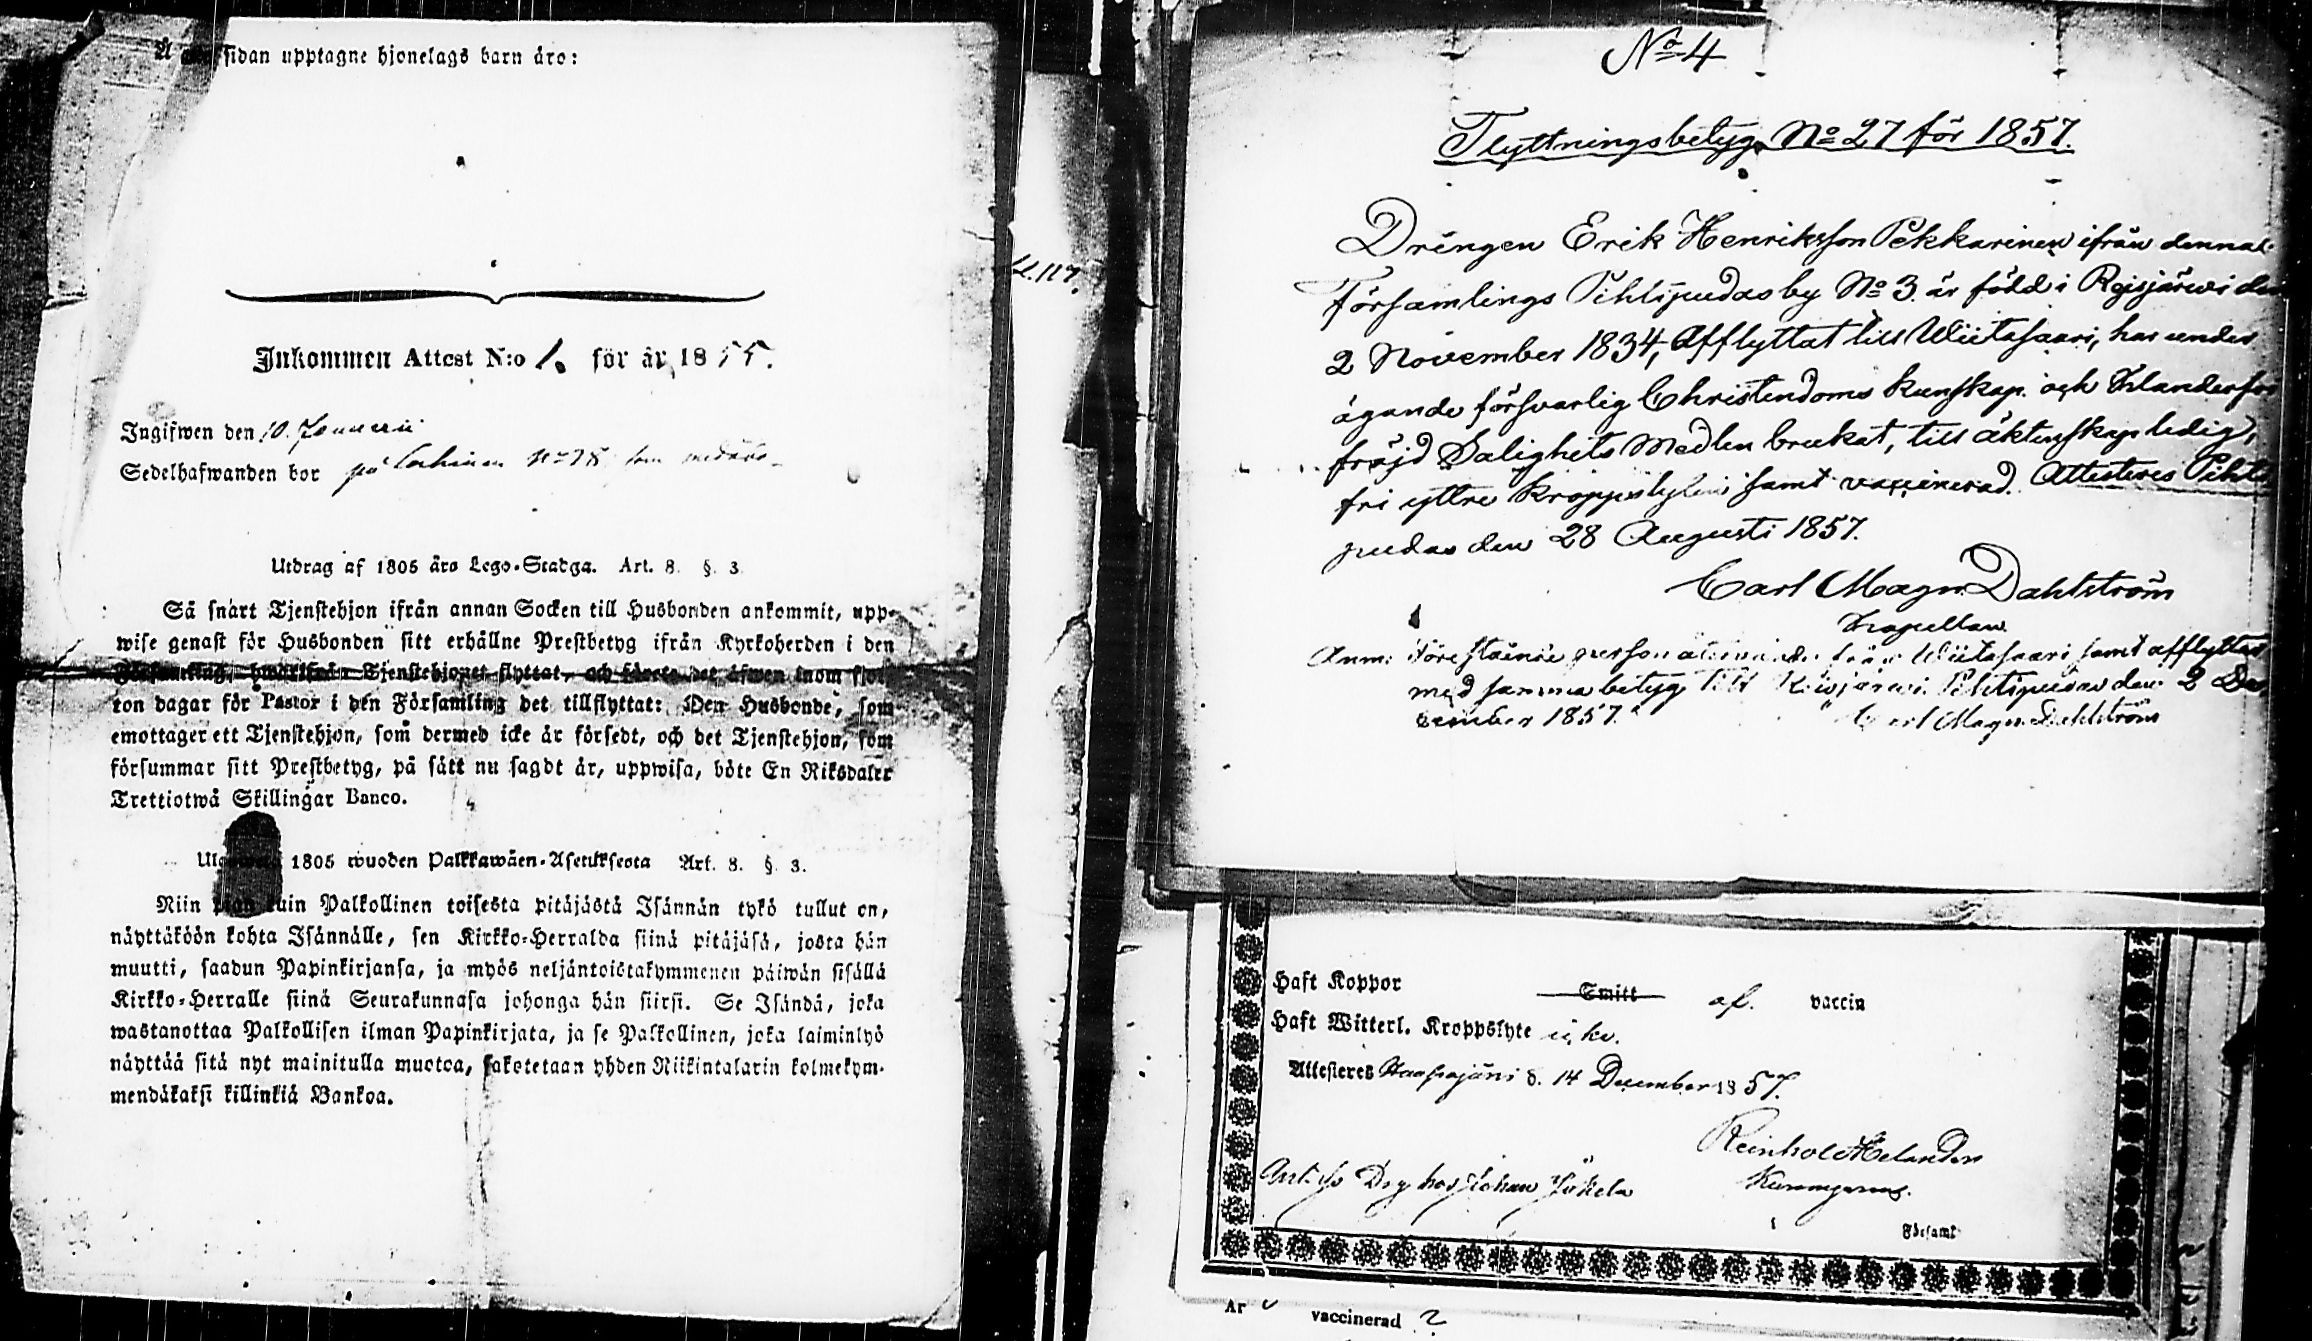 sidan upptagne hjonelags barn äro:
Inkommen Attest N:o 1. för år 1855.
Ingifwen den 10. Januarii
Sedelhafwanden bor på
Utdrag af 1805 års Lego-Stadga. Art. 8. §. 3.
Så snart Tjenstehjon ifrån annan Socken till Husbonden ankommit, upp-
wise genast för Husbonden sitt erhållne Prestbetyg ifrån Kyrkoherden i den
Församling, hwarifrån Tjenstehjonet flyttat, och förete det äfwen inom fjor-
ton dagar för Pastor i den Församling det tillflyttat: Den Husbonde, som
emottager ett Tjenstehjon, som dermed icke är försedt, och det Tjenstehjon, som
försummar sitt Prestbetyg, på sätt nu sagdt är, uppwisa, böte En Riksdaler
Trettiotwå Skillingar Banco.
1805 wuoden Palkkawäen-Asetuksesta Art. 8. §. 3.
Niin kuin Palkollinen toisesta pitäjästä Isännän tykö tullut on,
näyttäköön kohta Isännälle, sen Kirkko-Herralda siinä pitäjäsä, josta hän
muutti, saadun Papinkirjansa, ja myös neljäntoistakymmenen päiwän sisällä
Kirkko-Herralle siinä Seurakunnasa johonga hän siirsi. Se Isändä, joka
wastanottaa Palkollisen ilman Papinkirjata, ja se Palkollinen, joka laiminlyö
näyttää sitä nyt mainitulla muotoa, sakotetaan yhden Riikintalarin kolmekym-
mendäkaksi killinkiä Bankoa.
117.
No 4
Flyttningsbetyg No 27 för 1857.
Drängen Erik Henriksson Pekkarinen ifrån denna
Församlings Pihtipudas by No 3. är född i Reisjärwi den
2 November 1834, Afflyttat till Wiitasaari, har under
ägande försvarlig Christendoms kunskap och
fräjd Salighets Medlen brukat, till äktenskap ledig,
fri yttre kroppslyten samt vaccinerad. Attesteres Pihti
pudas den 28 Augusti 1857.
Carl Magn. Dahlström
Kapellan
Anm: Förestående person från Wiitasaari samt afflyttar
med samma betyg till Pihtipudas den 2 De
cember 1857. Carl Magn. Dahlström
Haft Koppor Smitt af. vaccin
Haft Witterl. Kroppslyte icke.
Attesteres Haapajärvi d. 14 December 1857.
Reinhold Helander
Drg hos Johan Jokela
Församl
Är vaccinerad ?